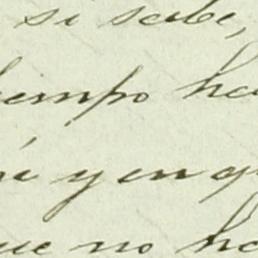 si sabe,
tiempo ha
y en q
que no ha